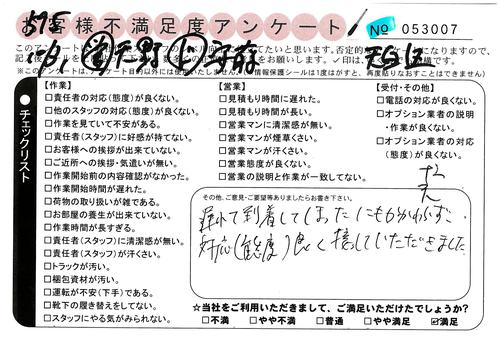 お客様不満足度アンケート
No 053007
575
10/1
このアン
たいと思います。否定的
なりますので、
記入
をお願いします。✓印は、
構です。
(※このアンケートは、アンケート目的以外には使用いたしません。
情報保護シールは1度はがすと、再度貼りなおすことはできません)
チェックリスト
【作業】
□責任者の対応(態度)が良くない。
□他のスタッフの対応(態度)が良くない。
□作業を見ていて不安がある。
□責任者(スタッフ)に好感が持てない。
□お客様への挨拶が出来ていない。
□ご近所への挨拶・気遣いが無い。
□作業開始前の内容確認がなかった。
□作業開始時間が遅れた。
□荷物の取り扱いが雑である。
□お部屋の養生が出来ていない。
□作業時間が長すぎる。
□責任者(スタッフ)に清潔感が無い。
□責任者(スタッフ)が汗くさい。
□トラックが汚い。
□梱包資材が汚い。
□運転が不安(下手)である。
□靴下の履き替えをしてない。
□スタッフにやる気がみられない。
【営業】
□見積もり時間に遅れた。
□見積もり時間が長い。
□営業マンに清潔感が無い。
□営業マンが煙草くさい。
□営業マンが汗くさい。
□営業態度が良くない。
□営業の説明と作業が一致してない。
【受付・その他】
□電話の対応が良くない。
□オプション業者の説明
・作業が良くない。
□オプション業者の対応
(態度)が良くない。
その他、ご意見・ご要望等ありましたらお書き下さい。
遅れて到着してしまったにもかかわらず、
対応(態度)良く接していただきました
☆当社をご利用いただきまして、ご満足いただけたでしょうか?
□不満 □やや不満 □普通 □やや満足 ☑満足